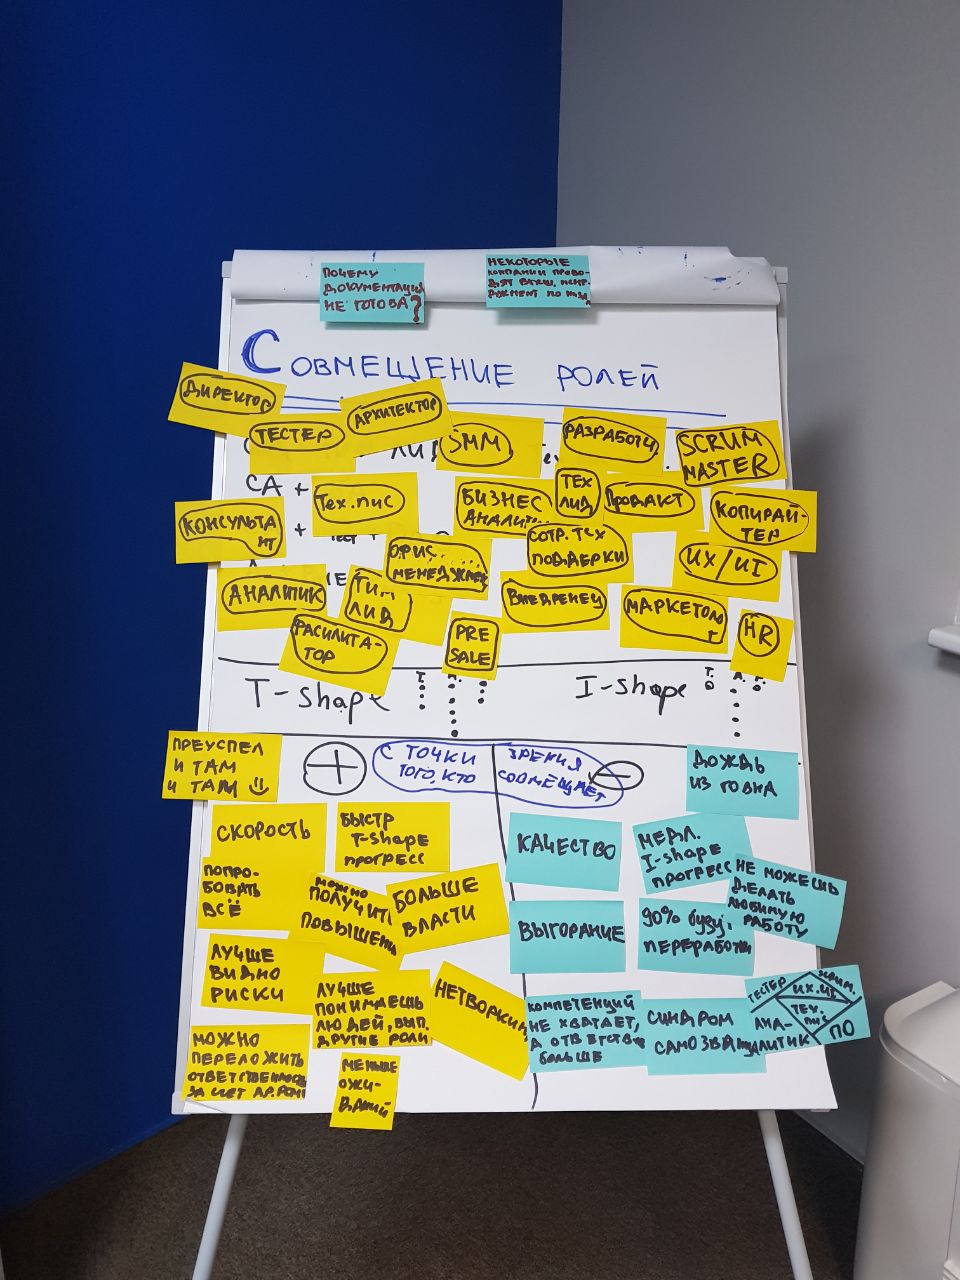 ПОЧЕМУ
ДОКУМЕНТАЦИЯ
НЕ ГОТОВА?
НЕКОТОРЫЕ
КОМПАНИИ ПРОВО-
ДЯТ
СОВМЕЩЕНИЕ РОЛЕЙ
ДИРЕКТОР
ТЕСТЕР
АРХИТЕКТОР
SMM
РАЗРАБОТЧ.
SCRUM
MASTER
СА +
Тех.пис
БИЗНЕС
АНАЛИТ
ТЕХ
ЛИД
ПРОДАКТ
КОПИРАЙ-
ТЕР
КОНСУЛЬТА
НТ
ОФИС
МЕНЕДЖМЕ
СОТР. ТЕХ
ПОДДЕРКИ
UX/UI
АНАЛИТИК
ТИМ
ЛИД
ВНЕДРЕНЕЦ
МАРКЕТОЛО
Г
HR
ФАСИЛИТА-
ТОР
PRE
SALE
T-shape
I-shape
ПРЕУСПЕЛ
И ТАМ
И ТАМ
+
С ТОЧКИ ЗРЕНИЯ
ТОГО, КТО СОВМЕЩАЕТ
−
ДОЖДЬ
ИЗ ГОВНА
СКОРОСТЬ
БЫСТР
T-SHAPE
ПРОГРЕСС
ПОПРО-
БОВАТЬ
ВСЁ
МОЖНО
ПОЛУЧИТЬ
ПОВЫШЕН
БОЛЬШЕ
ВЛАСТИ
ЛУЧШЕ
ВИДНО
РИСКИ
ЛУЧШЕ
ПОНИМАЕШЬ
ЛЮДЕЙ, ВЫП.
ДРУГИЕ РОЛИ
НЕТВОРКИНГ
МОЖНО
ПЕРЕЛОЖИТЬ
ОТВЕТСТВЕННОСТЬ
ЗА СЧЕТ ДР. РОЛИ
МЕНЬШЕ
ОЖИ-
ДАНИЙ
КАЧЕСТВО
МЕДЛ.
I-SHAPE
ПРОГРЕСС
НЕ МОЖЕШЬ
ДЕЛАТЬ
ЛЮБИМУЮ
РАБОТУ
ВЫГОРАНИЕ
90% БУДУТ
ПЕРЕРАБОТКИ
КОМПЕТЕНЦИЙ
НЕ ХВАТАЕТ,
А ОТВЕТСТВ
БОЛЬШЕ
СИНДРОМ
САМОЗВАНЦА
ТЕСТЕР
UX.UI
ТЕХ.
ПИС
АНА-
ЛИТИК
ПО